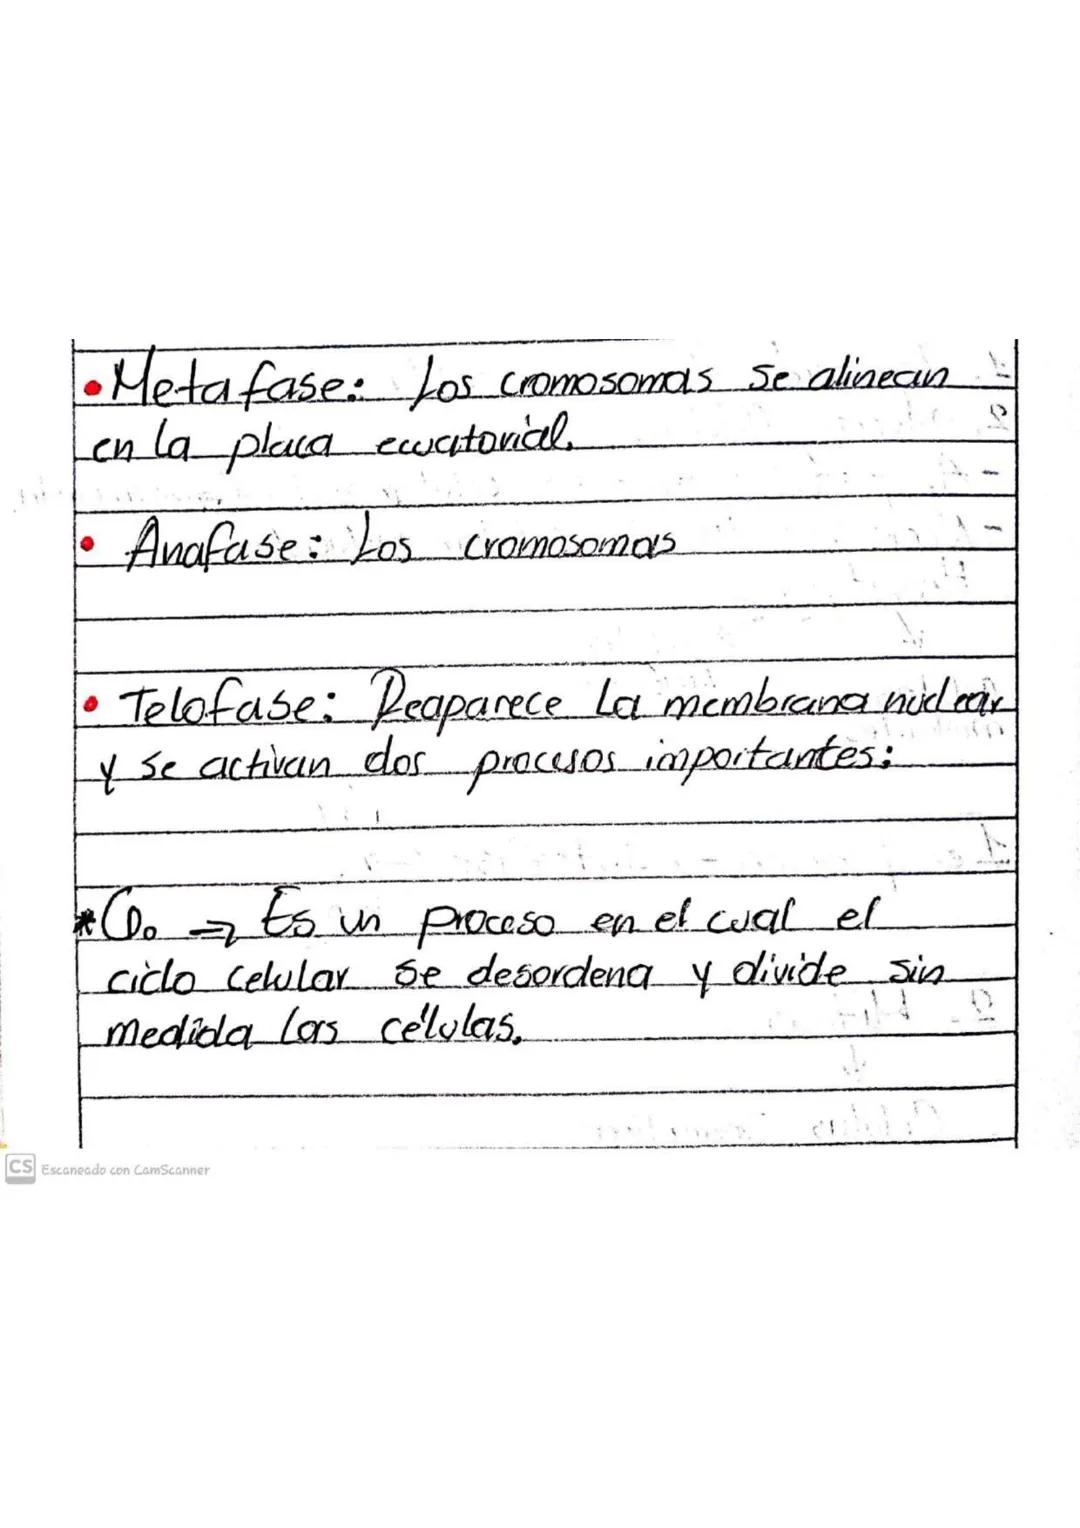 • Metafase: Los cromosomas se alinean
en la placa ecuatorial.
• Anafase: Los cromosomas
• Telofase: Reaparece la membrana nuclear
y se activan dos procesos importantes:
* G₀ ⇒ Es un proceso en el cual el
ciclo celular se desordena y divide sin
medida las células.
CS Escaneado con CamScanner